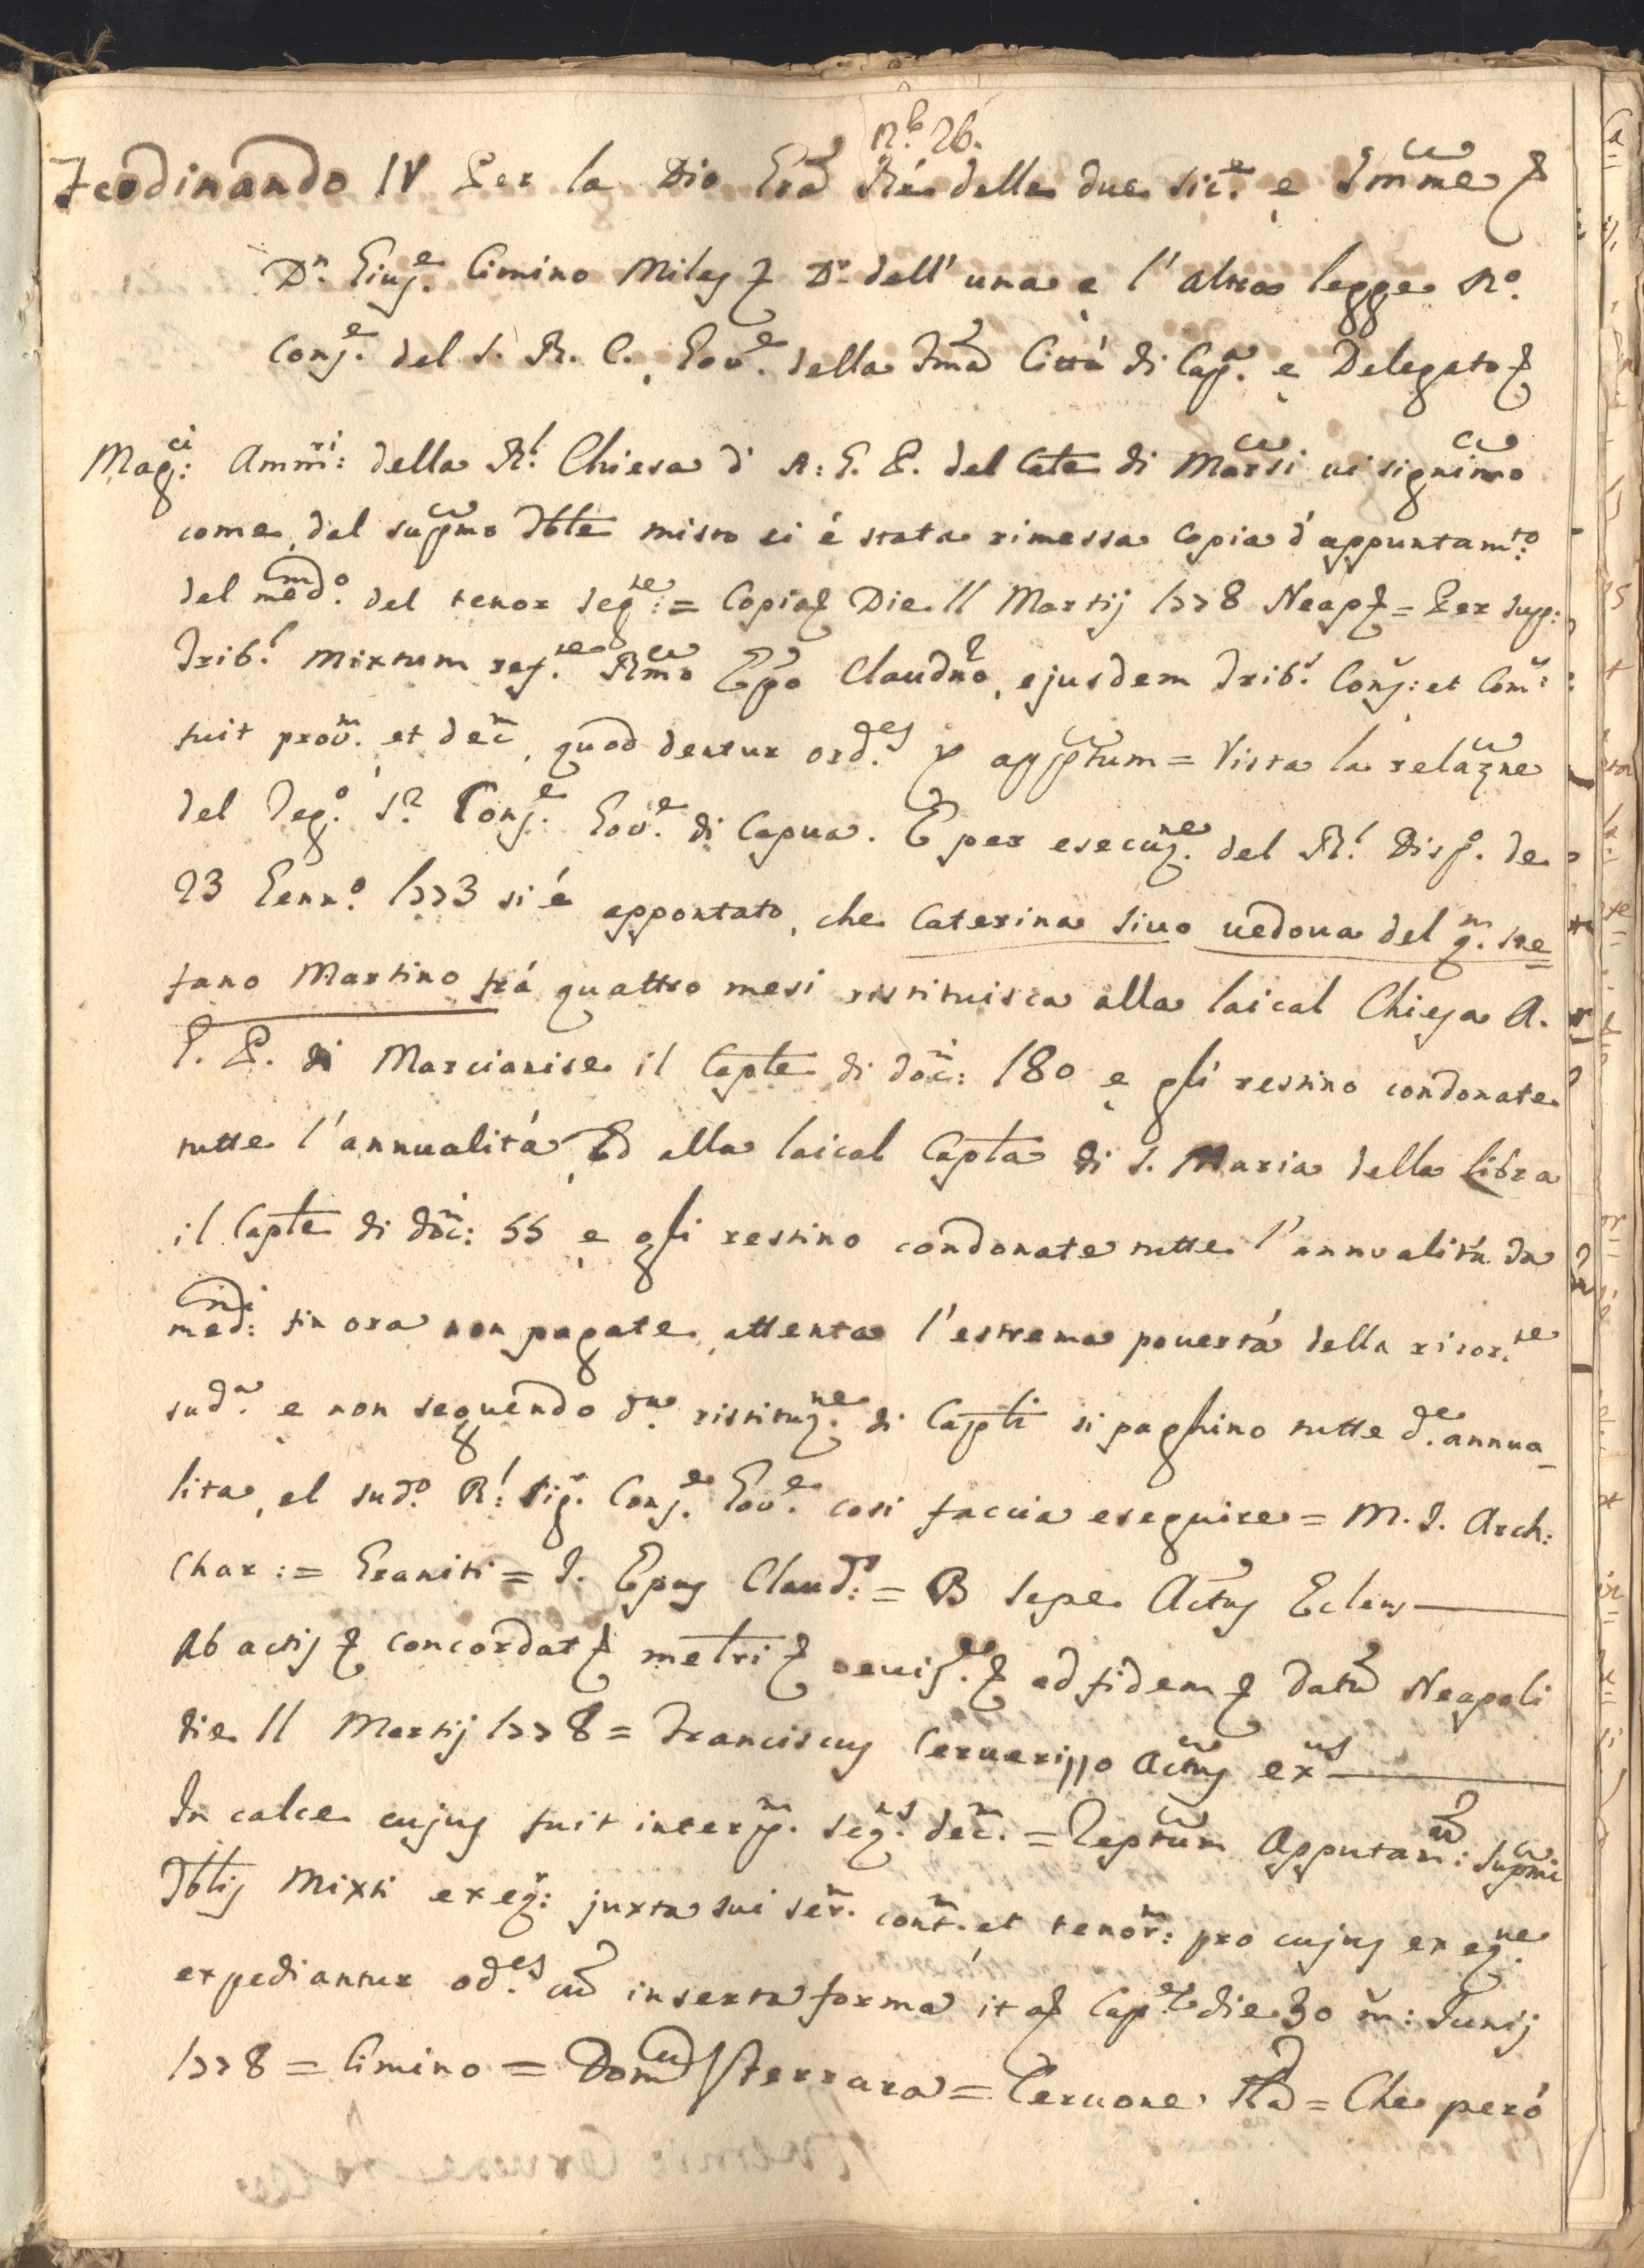 n.° 26.
Ferdinando IV Per la Dio Gra Ré delle due Sic.e e Gmme &
D.n Gius.e Cimino Miles & D.r dell'una e l'altra legge R.o
Cons.e del S. R. C., Gov.e della Fma Cittá di Cap.a e Delegato &
Mag.ci Amm.ri della R.l Chiesa d' A: G. P. del Cale di Marsi vi significamo
come dal supmo Tble misto ci é stata rimessa Copia d'appuntam.to
del med.o del tenor seg.te = Copia & Die 11 Martij 1778 Neap & = Per sup:
Trib.l mixtum ref.te Rmo Epo Claudno, ejusdem Trib.l Cons: et Com:
fuit prov. et dec, quod dentur ord.es p app̃tum = Vista la relazne
del Deg.o S.r Cons.e Gov.e di Capua. E per esecuz.ne del R.l Disp.o de
23 Genn.o 1773 si é appontato, che Caterina Sivo vedova del q.m Ste=
fano Martino frá quattro mesi ristituisca alla laical Chiesa A.
G. P. di Marcianise il Capte di doc: 180 e gli restino condonate
tutte l'annualitá, Ed alla laical Capla di S. Maria della libra
il Capte di doc: 55 e gli restino condonate tutte l'annualitá da
med.i fin ora non pagate, attenta l'estrema povertá della ricor.te
sud.a e non seguendo d.a ristituz.ne di Capli si paghino tutte d.e annua_
lita, el sud.o R.l Sig.r Cons.e Gov.e cosi faccia eseguire = M. I. Arch:
Char := Graniti = I. Epus Claud: = B Sepe Actus Eclens
Ab actis & concordat & meliori & revis.e & ad fidem & Datu Neapoli
die 11 Martij 1778 = Franciscus Cervarizzo Actus ex.us
In calce cujus fuit interp. seq.s dec. = Reptum Apputam: supmi
Tblis Mixti exeq: juxta sui ser. cont. et tenor: pro cujus exeq.ne
expediantur od.es cu inserta forma ita & Cap.e die 30 m: Junij
1778 = Cimino = Dom Ferrara = Cervone = Che peró